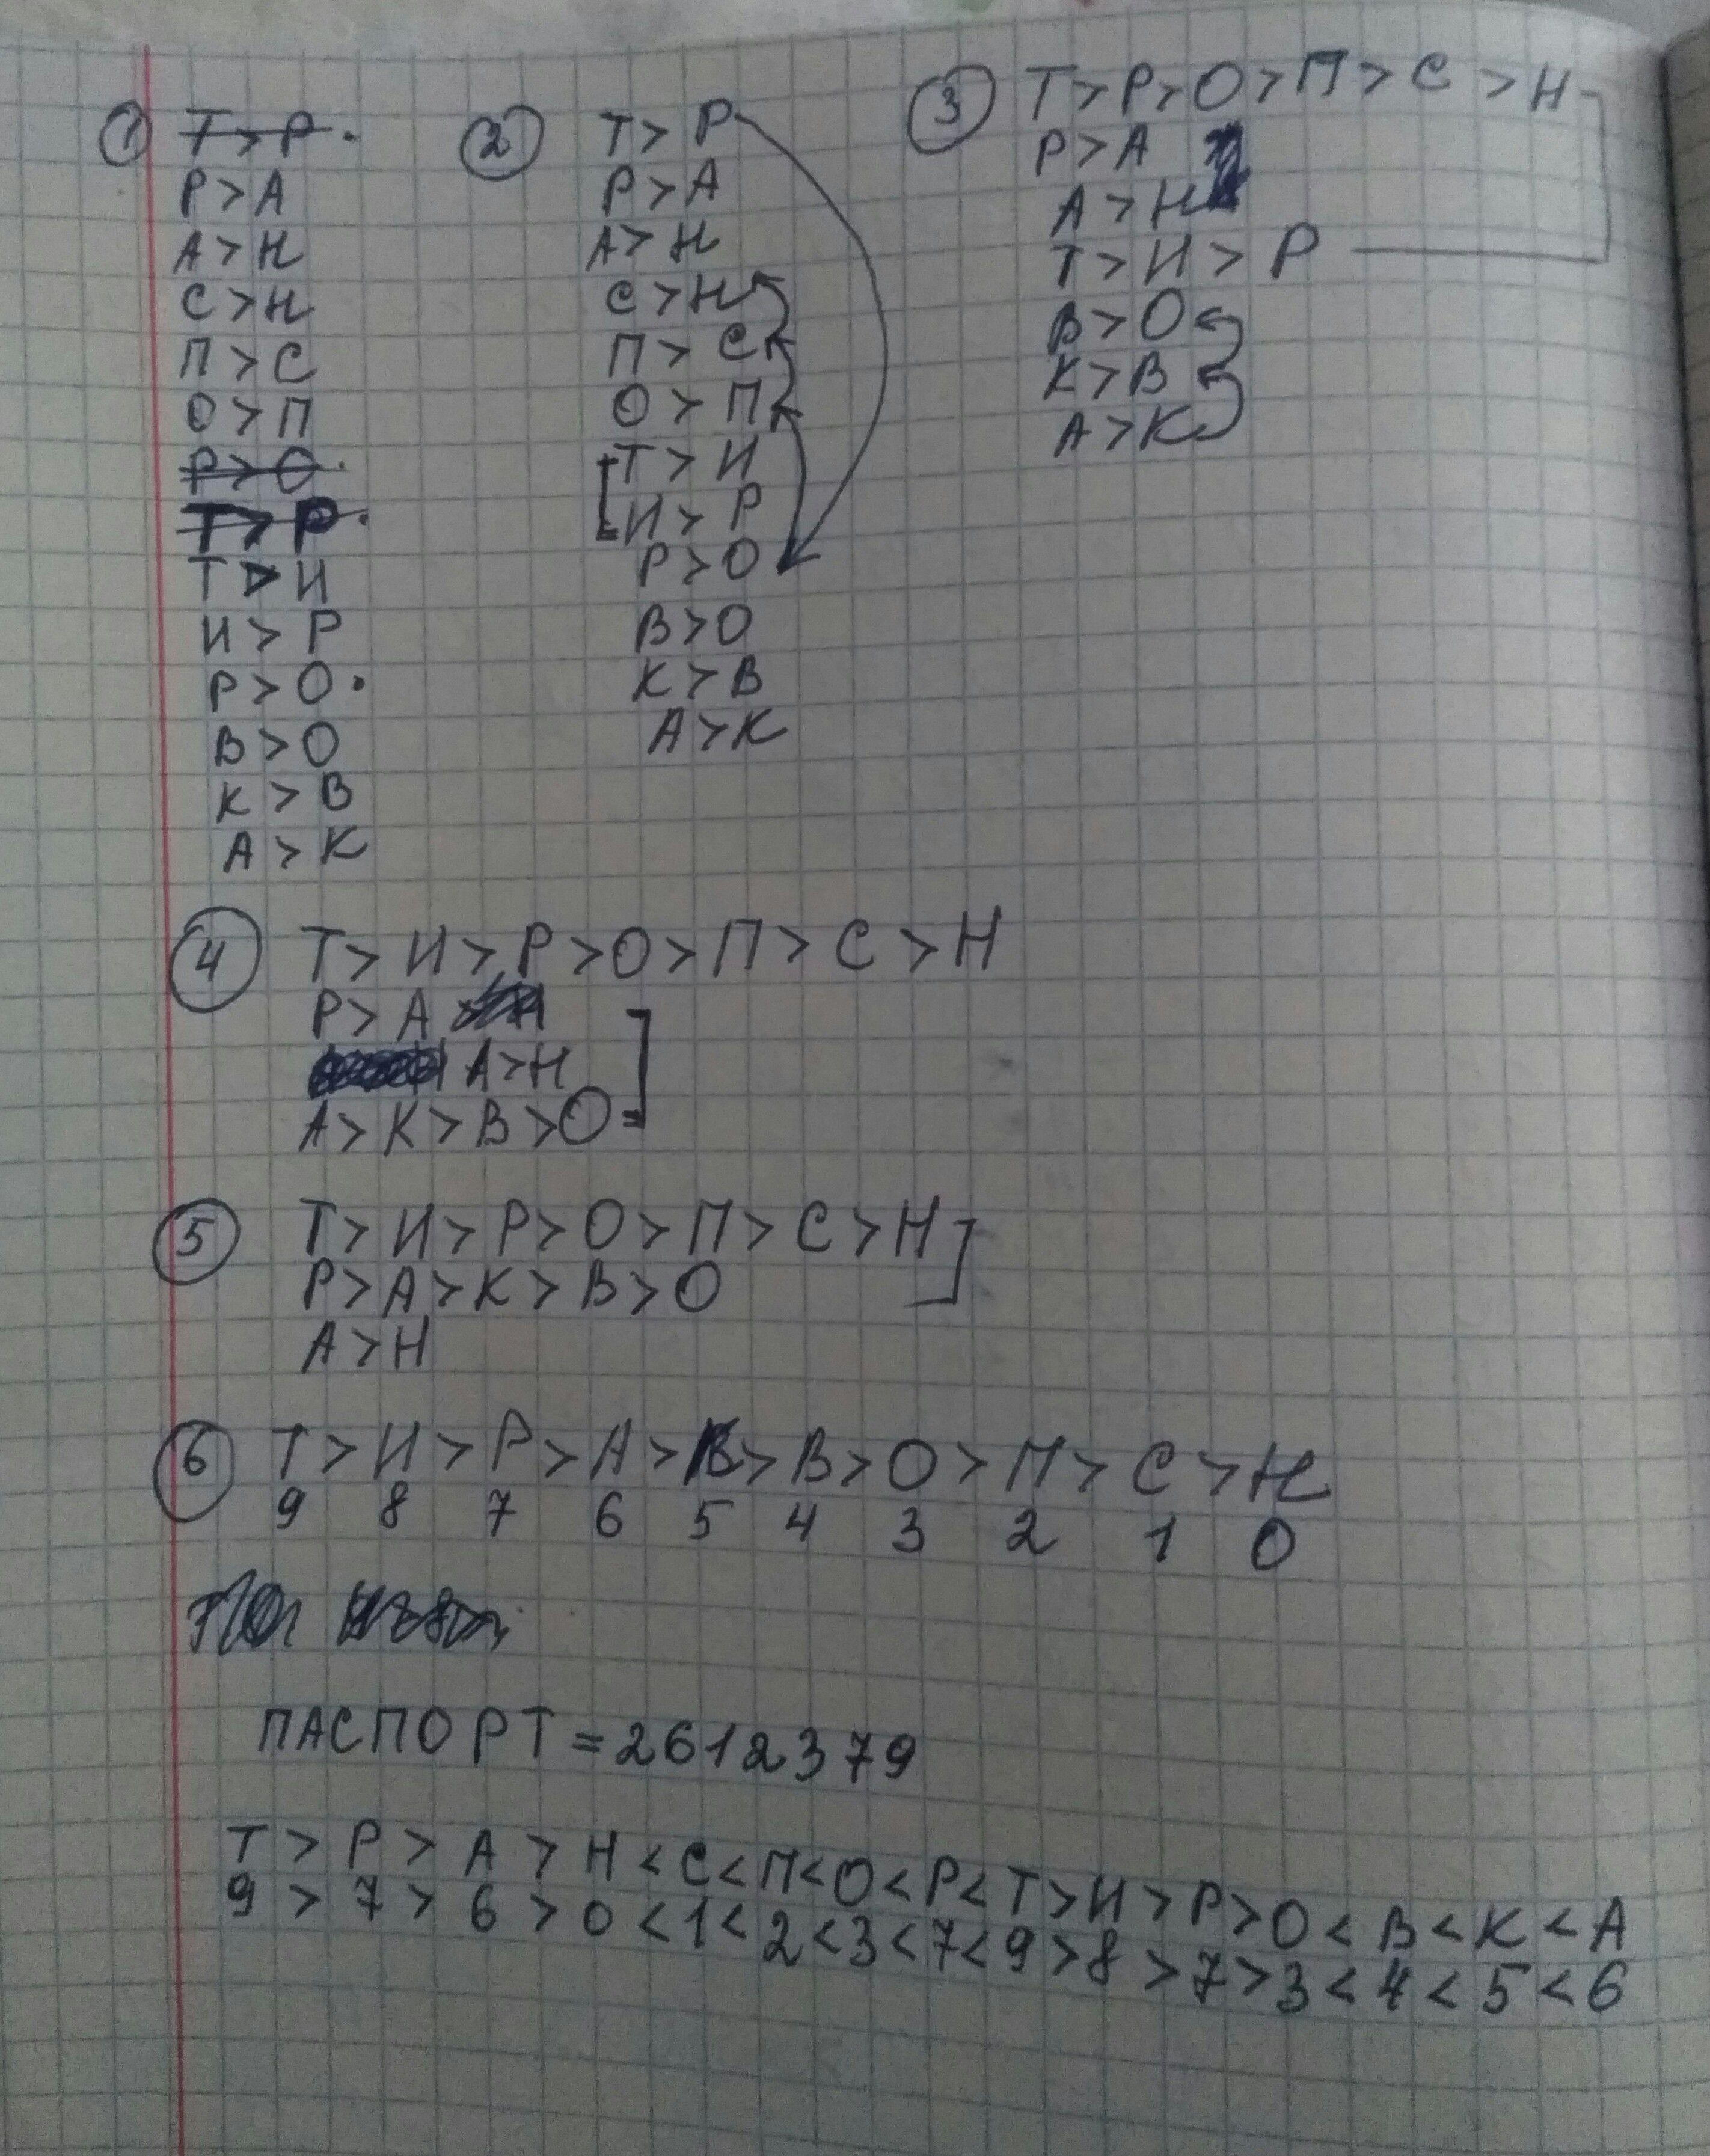 ①
Т > Р .
Р > А
А > Н
С > Н
П > С
О > П
Р > О .
Т > Р .
Т > И
И > Р
Р > О .
В > О
К > В
А > К
②
Т > Р
Р > А
А > Н
С > Н
П > С
О > П
Т > И
И > Р
Р > О
В > О
К > В
А > К
③ Т > Р > О > П > С > Н
Р > А
А > Н
Т > И > Р
В > О
К > В
А > К
④ Т > И > Р > О > П > С > Н
Р > А
А > Н
А > К > В > О
⑤ Т > И > Р > О > П > С > Н
Р > А > К > В > О
А > Н
⑥ Т > И > Р > А > К > В > О > П > С > Н
9 8 7 6 5 4 3 2 1 0
ПАСПОРТ = 2612379
Т > Р > А > Н < С < П < О < Р < Т > И > Р > О < В < К < А
9 > 7 > 6 > 0 < 1 < 2 < 3 < 7 < 9 > 8 > 7 > 3 < 4 < 5 < 6